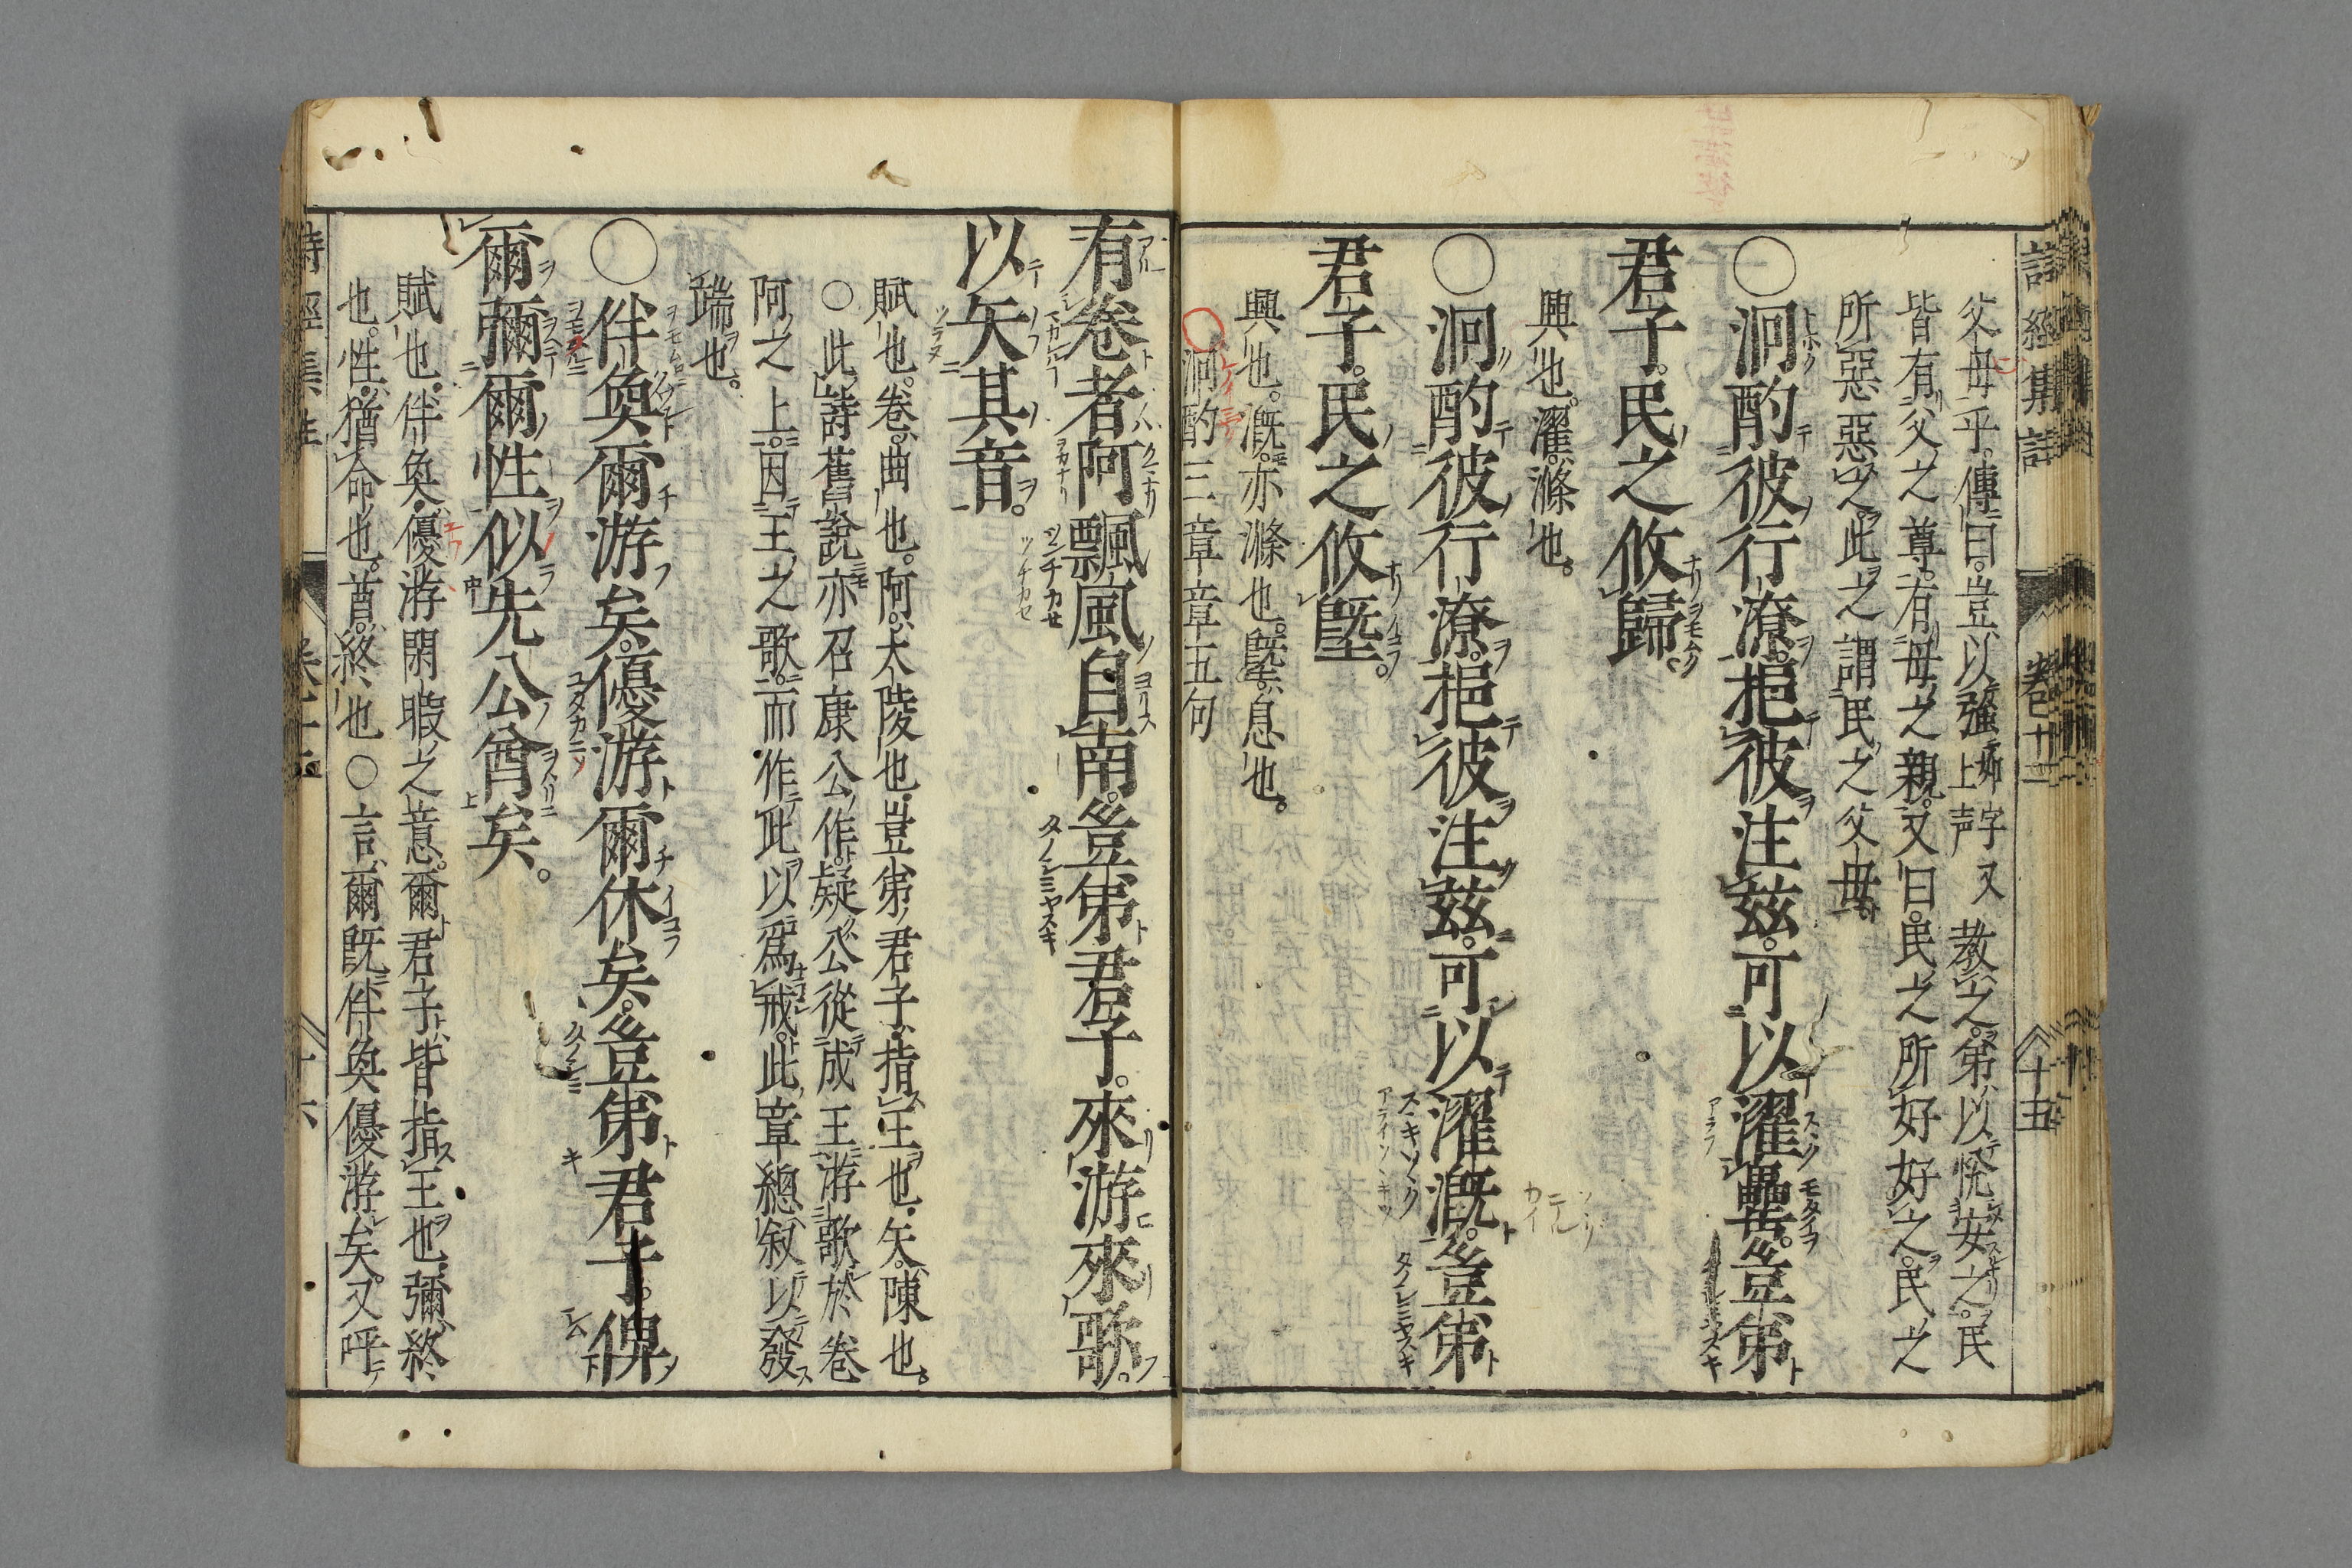 詩經集註 卷十二 十五
父母乎。傳曰。豈以強上声如字又教之。弟以悅安之。民
皆有父之尊。有母之親。又曰。民之所好好之。民之
所惡惡之。此之謂民之父母。
○泂酌彼行潦。挹彼注茲。可以濯罍。豈弟
君子。民之攸歸。
興也。濯。滌也。
○泂酌彼行潦。挹彼注茲。可以濯漑。豈弟
君子。民之攸塈。
興也。漑。亦滌也。塈。息也。
泂酌三章章五句
有卷者阿。飄風自南。豈弟君子。來游來歌。
以矢其音。
賦也。卷。曲也。阿。大陵也。豈弟君子。指王也。矢。陳也。
○此詩舊說亦召康公作。疑公從成王游歌於卷
阿之上。因王之歌。而作此以爲戒。此章總叙以發
端也。
○伴奐爾游矣。優游爾休矣。豈弟君子。俾
爾彌爾性。似先公酋矣。
賦也。伴奐。優游閑暇之意。爾君子。皆指王也。彌。終
也。性。猶命也。酋。終也○言爾既伴奐優游矣。又呼